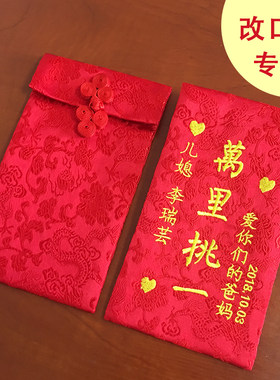 改口
专
萬里挑一
儿媳 李瑞芸
爱你们的爸妈
2018.10.03